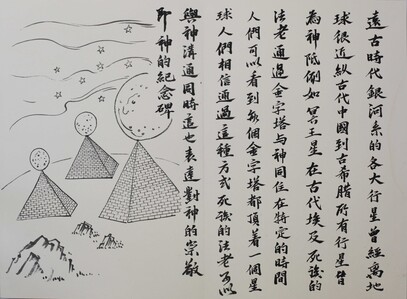 遠古時代銀河系的各大行星曾經离地
球很近從古代中國到古希腊所有行星皆
為神祇例如冥王星在古代埃及死後的
法老通過金字塔与神同住在特定的時間
人們可以看到每個金字塔都頂着一個星
球人們相信通過這種方式死後的法老可以
與神溝通同時這也表達對神的崇敬
即神的紀念碑